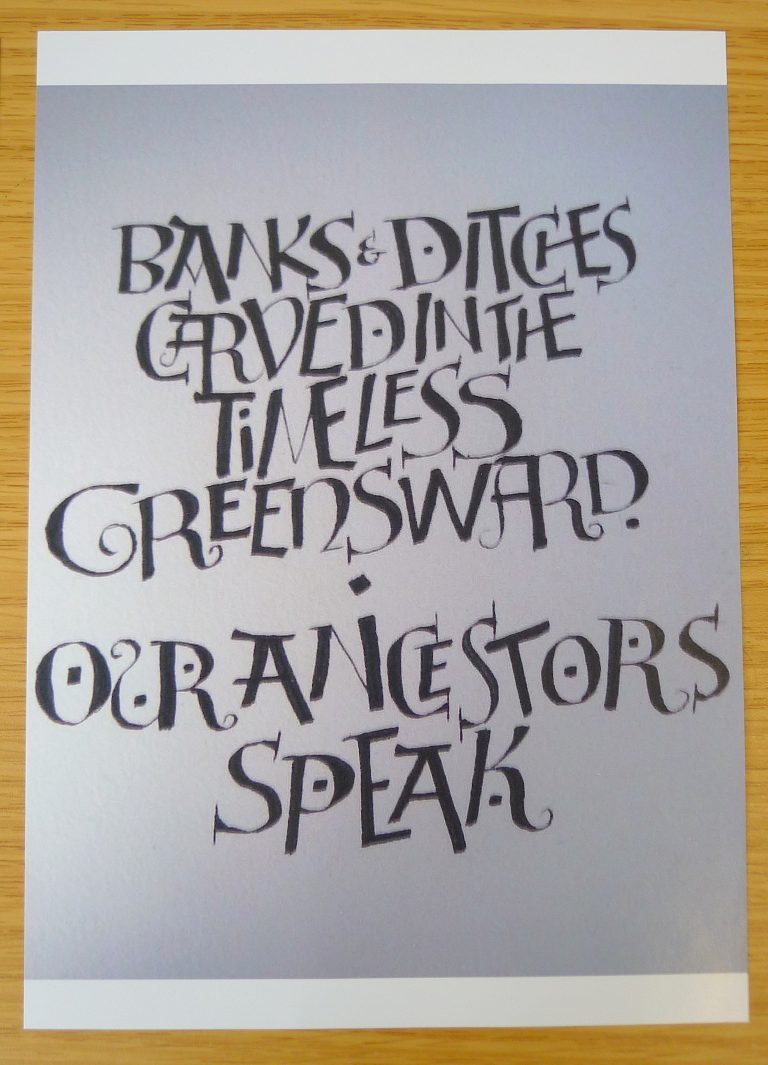 BANKS & DITCHES
CARVED IN THE
TIMELESS
GREENSWARD.
OUR ANCESTORS
SPEAK